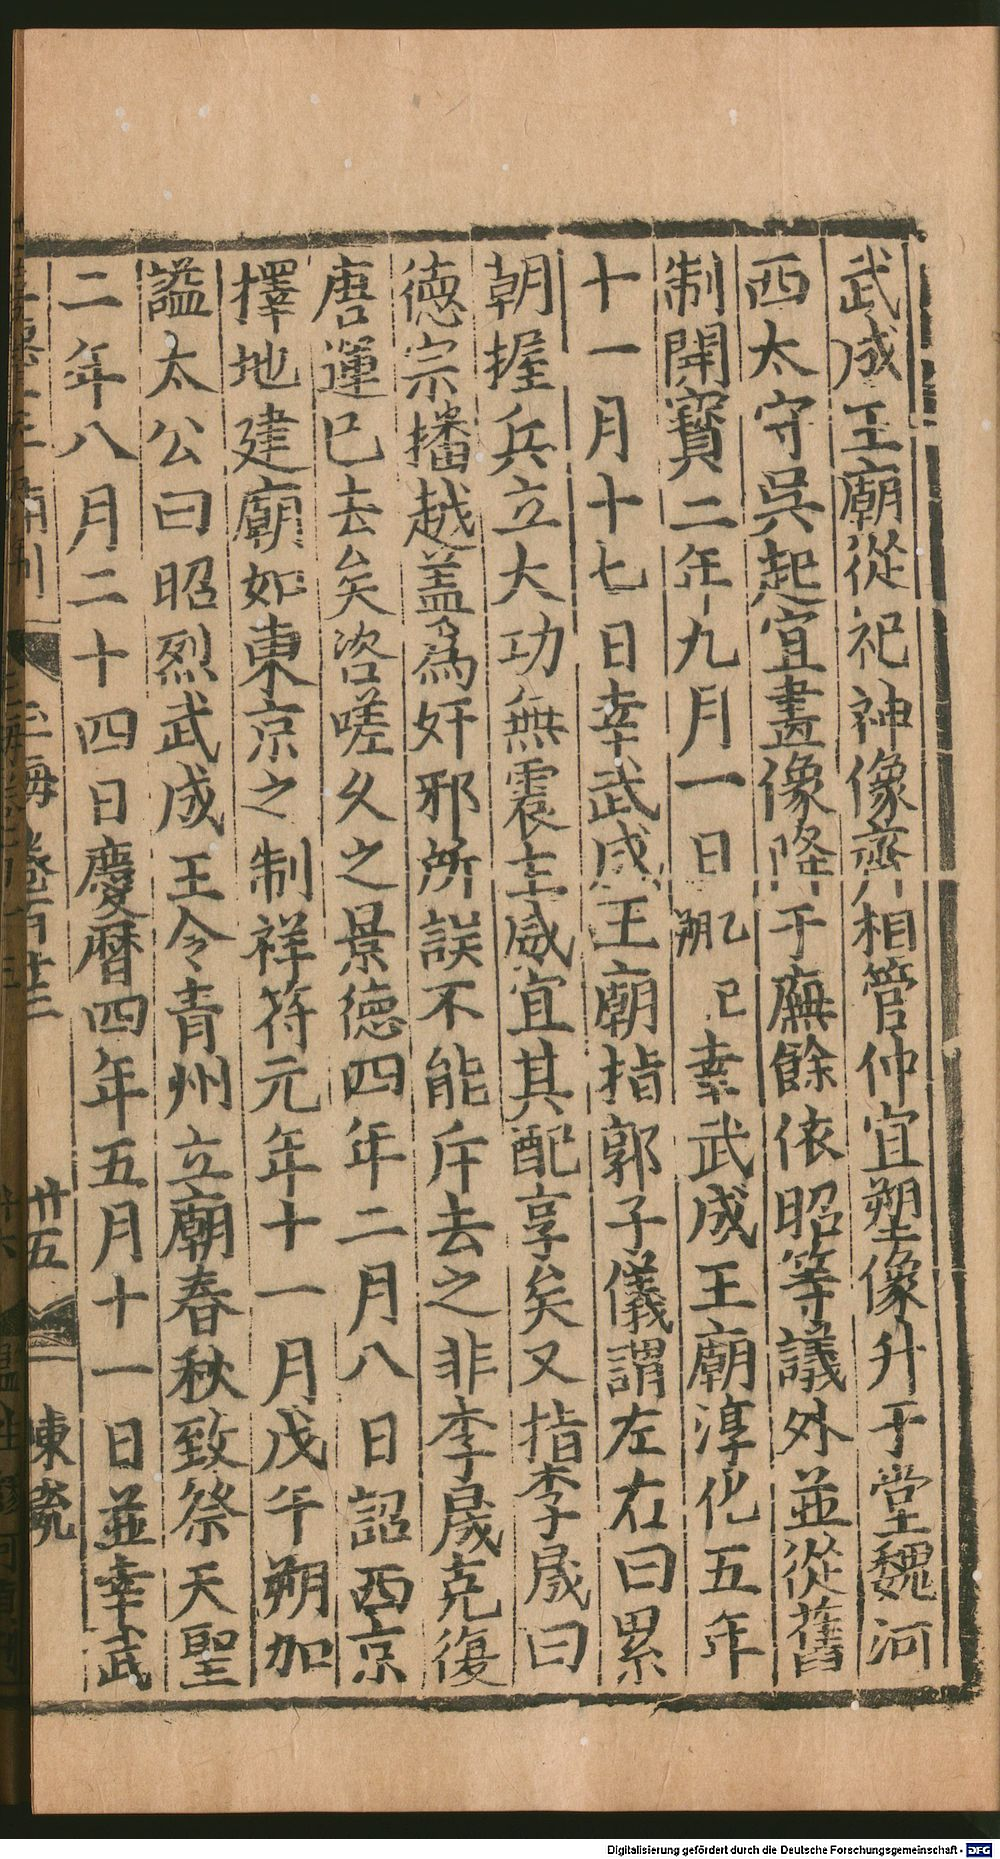 武成王廟從祀神像齊相管仲宜塑像升于堂魏河
西太守吳起宜畫像降于廡餘依昭等議外並從舊
制開寶二年九月一日乙巳朔幸武成王廟淳化五年
十一月十七日幸武成王廟指郭子儀謂左右曰累
朝握兵立大功無震主威宜其配享矣又指李晟曰
德宗播越盖為奸邪所誤不能斥去之非李晟克復
唐運已去矣咨嗟久之景德四年二月八日詔西京
擇地建廟如東京之制祥符元年十一月戊午朔加
謚太公曰昭烈武成王令青州立廟春秋致祭天聖
二年八月二十四日慶曆四年五月十一日並幸武
玉海卷百廿三
廿五
Digitalisierung gefördert durch die Deutsche Forschungsgemeinschaft - DFG